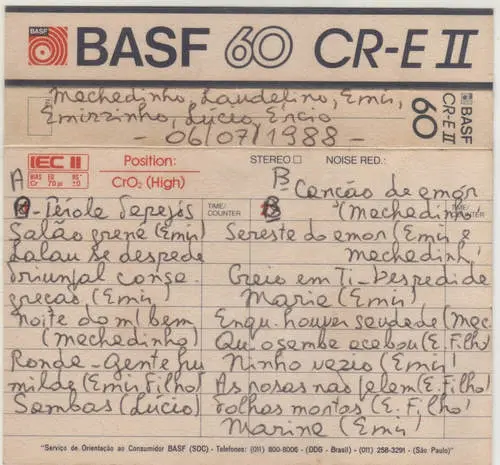 BASF 60 CR-E II
Machadinho, Laudelino, Emir,
Emirzinho, Lúcio, Éncio
- 06/07/1988 -
BASF
CR-E II
60
IEC II
BIAS EQ
Cr 70 µs
Position:
CrO₂ (High)
STEREO
NOISE RED.:
A
- Pérola Tapejós
TIME/
COUNTER
Salão grená (Emir)
Lalau se despede
triunfal conse-
greção (Emir)
noite do m/ bem
(Machadinho)
Ronda - Gente hu
milde (Emir Filho)
Sambas (Lúcio)
B - Canção de amor
(Machadinho)
TIME/
COUNTER
Sereste do amor (Emir e
Machadinh)
Creio em Ti - Despedida de
Maria (Emir)
Enqu. houver saudade (Mac.
Qu. o samba acabou (E. Filho)
Ninho vazio (Emir)
As rosas não falam (E. Filho)
Folhas mortas (E. Filho)
Marina (Emir)
"Serviço de Orientação ao Consumidor BASF (SOC) - Telefones: (011) 800-8006 - (DDG - Brasil) - (011) 258-3291 - (São Paulo)"